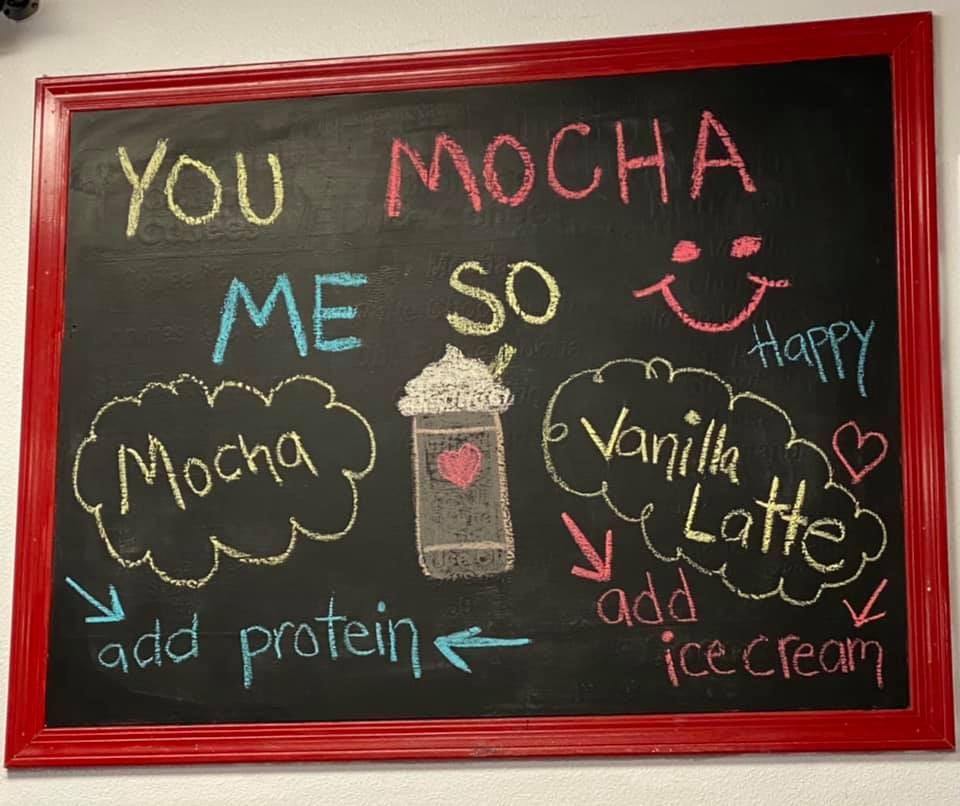 YOU MOCHA
ME SO
Happy
Mocha
Vanilla
Latte
add protein
add
ice cream